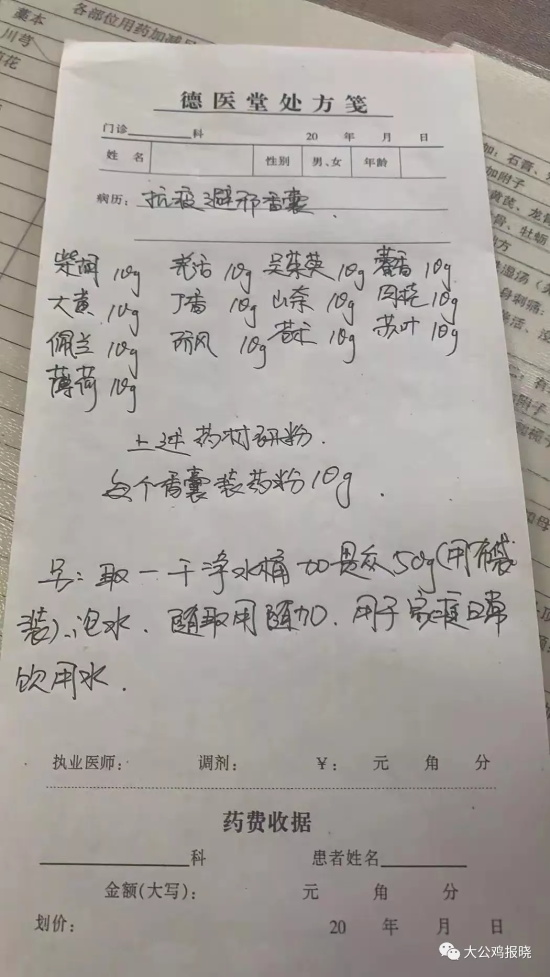 藁本
川芎
花
各部位用药加减
德医堂处方笺
门诊 科 20 年 月 日
姓名 性别 男、女 年龄
病历: 抗疫避邪香囊.
柴胡 10g 羌活 10g 吴茱萸 10g 藿香 10g
大黄 10g 丁香 10g 山奈 10g 10g
佩兰 10g 防风 10g 苍术 10g 苏叶 10g
薄荷 10g
上述药材研粉.
每个香囊装药粉10g.
另:取一干净水桶加贯众50g(用布袋
装)、泡水.随取用随加.用于家庭日常
饮用水.
执业医师: 调剂: ¥: 元 角 分
药费收据
科 患者姓名
金额(大写): 元 角 分
划价: 20 年 月 日
大公鸡报晓